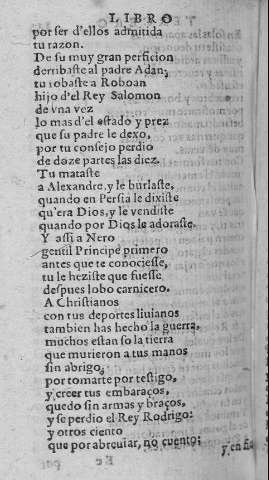 LIBRO
por ser d'ellos admitida
tu razon.
De su muy gran perficion
derribaste al padre Adan;
tu robaste a Roboan
hijo d'el Rey Salomon
de vna vez
lo mas d'el estado y prez
que su padre le dexo,
por tu consejo perdio
de doze partes las diez.
Tu mataste
a Alexandre, y le burlaste,
quando en Persia le dixiste
qu'era Dios, y le vendiste
quando por Dios le adoraste.
Y assi a Nero
gentil Principe primero
antes que te conociesse,
tu le heziste que fuesse
despues lobo carnicero.
A Christianos
con tus deportes liuianos
tambien has hecho la guerra,
muchos estan so la tierra
que murieron a tus manos
sin abrigo,
por tomarte por testigo,
y creer tus embaraços,
quedo sin armas y braços,
y se perdio el Rey Rodrigo:
y otros ciento
que por abreuiar, no cuento;
y en